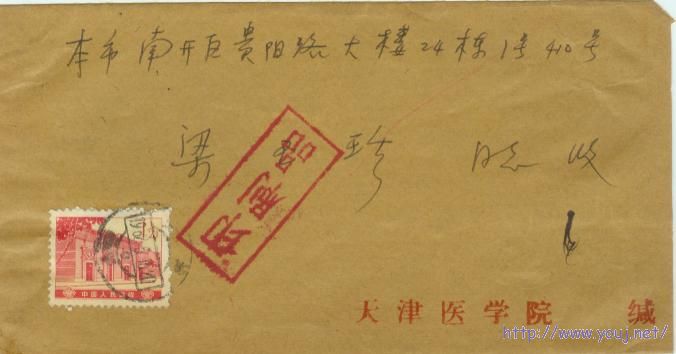 本市南开区贵阳路大楼24栋1号410号
梁 珍 同志 收
印刷品
中国人民邮政
天津医学院 缄
http://www.youj.net/